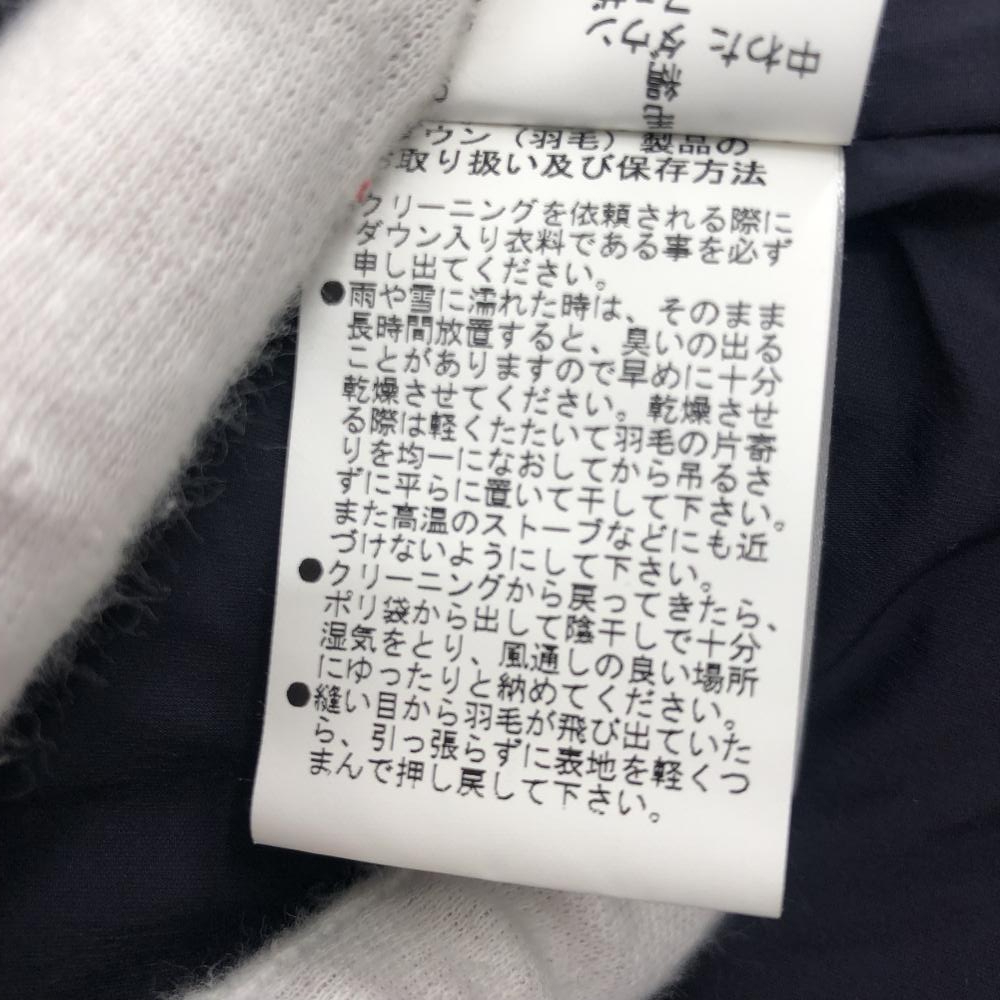 中わた
ダウン
毛
ダウン（羽毛）製品の
お取り扱い及び保存方法
クリーニングを依頼される際に
ダウン入り衣料である事を必ず
申し出てください。
●雨や雪に濡れた時は、そのまま
長時間放置すると、臭いの出る
ことがありますので早めに十分
乾燥させてください。乾燥させ
る際は軽くたたいて羽毛の片寄
りを均一になおしてから吊るさ
ずに平らに置いて干して下さい。
また高温のストーブなどにも近
づけないようにして下さい。
●クリーニングから戻ってきたら、
ポリ袋から出して陰干しで十分
湿気をとり、風通しの良い場所
にゆったりと納めてください。
●縫い目から羽毛が飛び出ていた
ら、引っ張らずに表地を軽くつ
まんで押し戻して下さい。